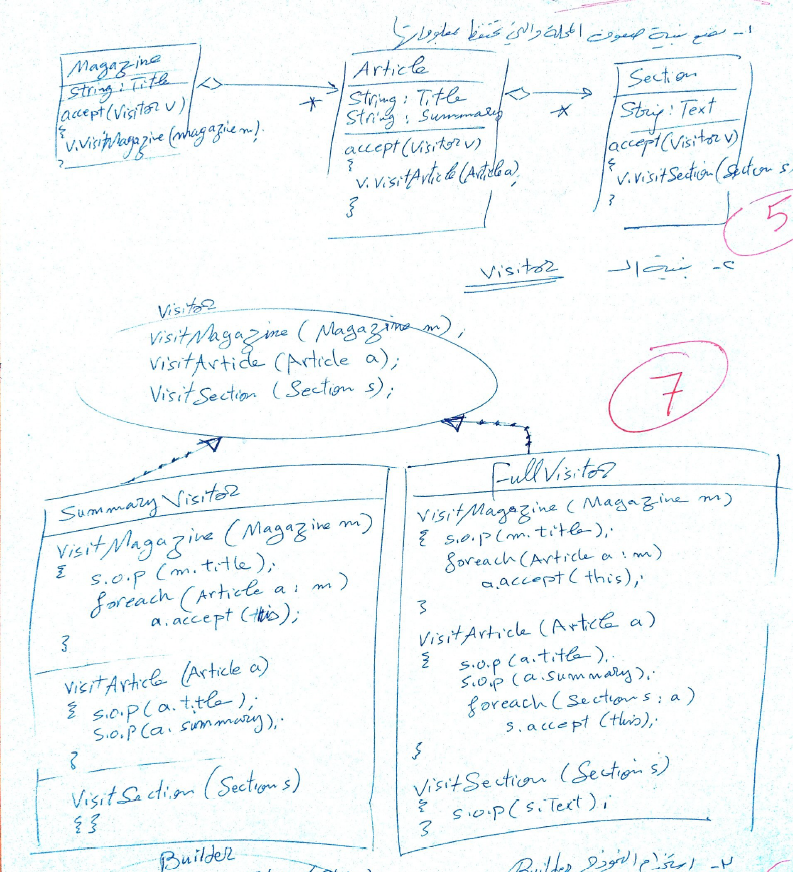 ١- نضع بنية صفوف المجلة والتي تحتفظ بمعلوماتها
Magazine
String: Title
accept(Visitor v)
{
v.VisitMagazine(magazine m);
}
*
Article
String: Title
String: Summary
accept(Visitor v)
{
v.VisitArticle(Article a);
}
*
Section
String: Text
accept(Visitor v)
{
v.visitSection(Section s
}
5
٢- بنية الـ Visitor
Visitor
VisitMagazine (Magazine m);
VisitArticle (Article a);
VisitSection (Section s);
7
Summary Visitor
VisitMagazine (Magazine m)
{ s.o.p (m.title);
foreach (Article a : m)
a.accept (this);
}
visitArticle (Article a)
{ s.o.p (a.title);
s.o.p (a.summary);
}
VisitSection (Section s)
{ }
FullVisitor
VisitMagazine (Magazine m)
{ s.o.p (m.title);
foreach (Article a : m)
a.accept (this);
}
VisitArticle (Article a)
{ s.o.p (a.title);
s.o.p (a.summary);
foreach (Section s : a)
s.accept (this);
}
VisitSection (Section s)
{ s.o.p (s.Text);
}
Builder
٢- استخدام النموذج Builder